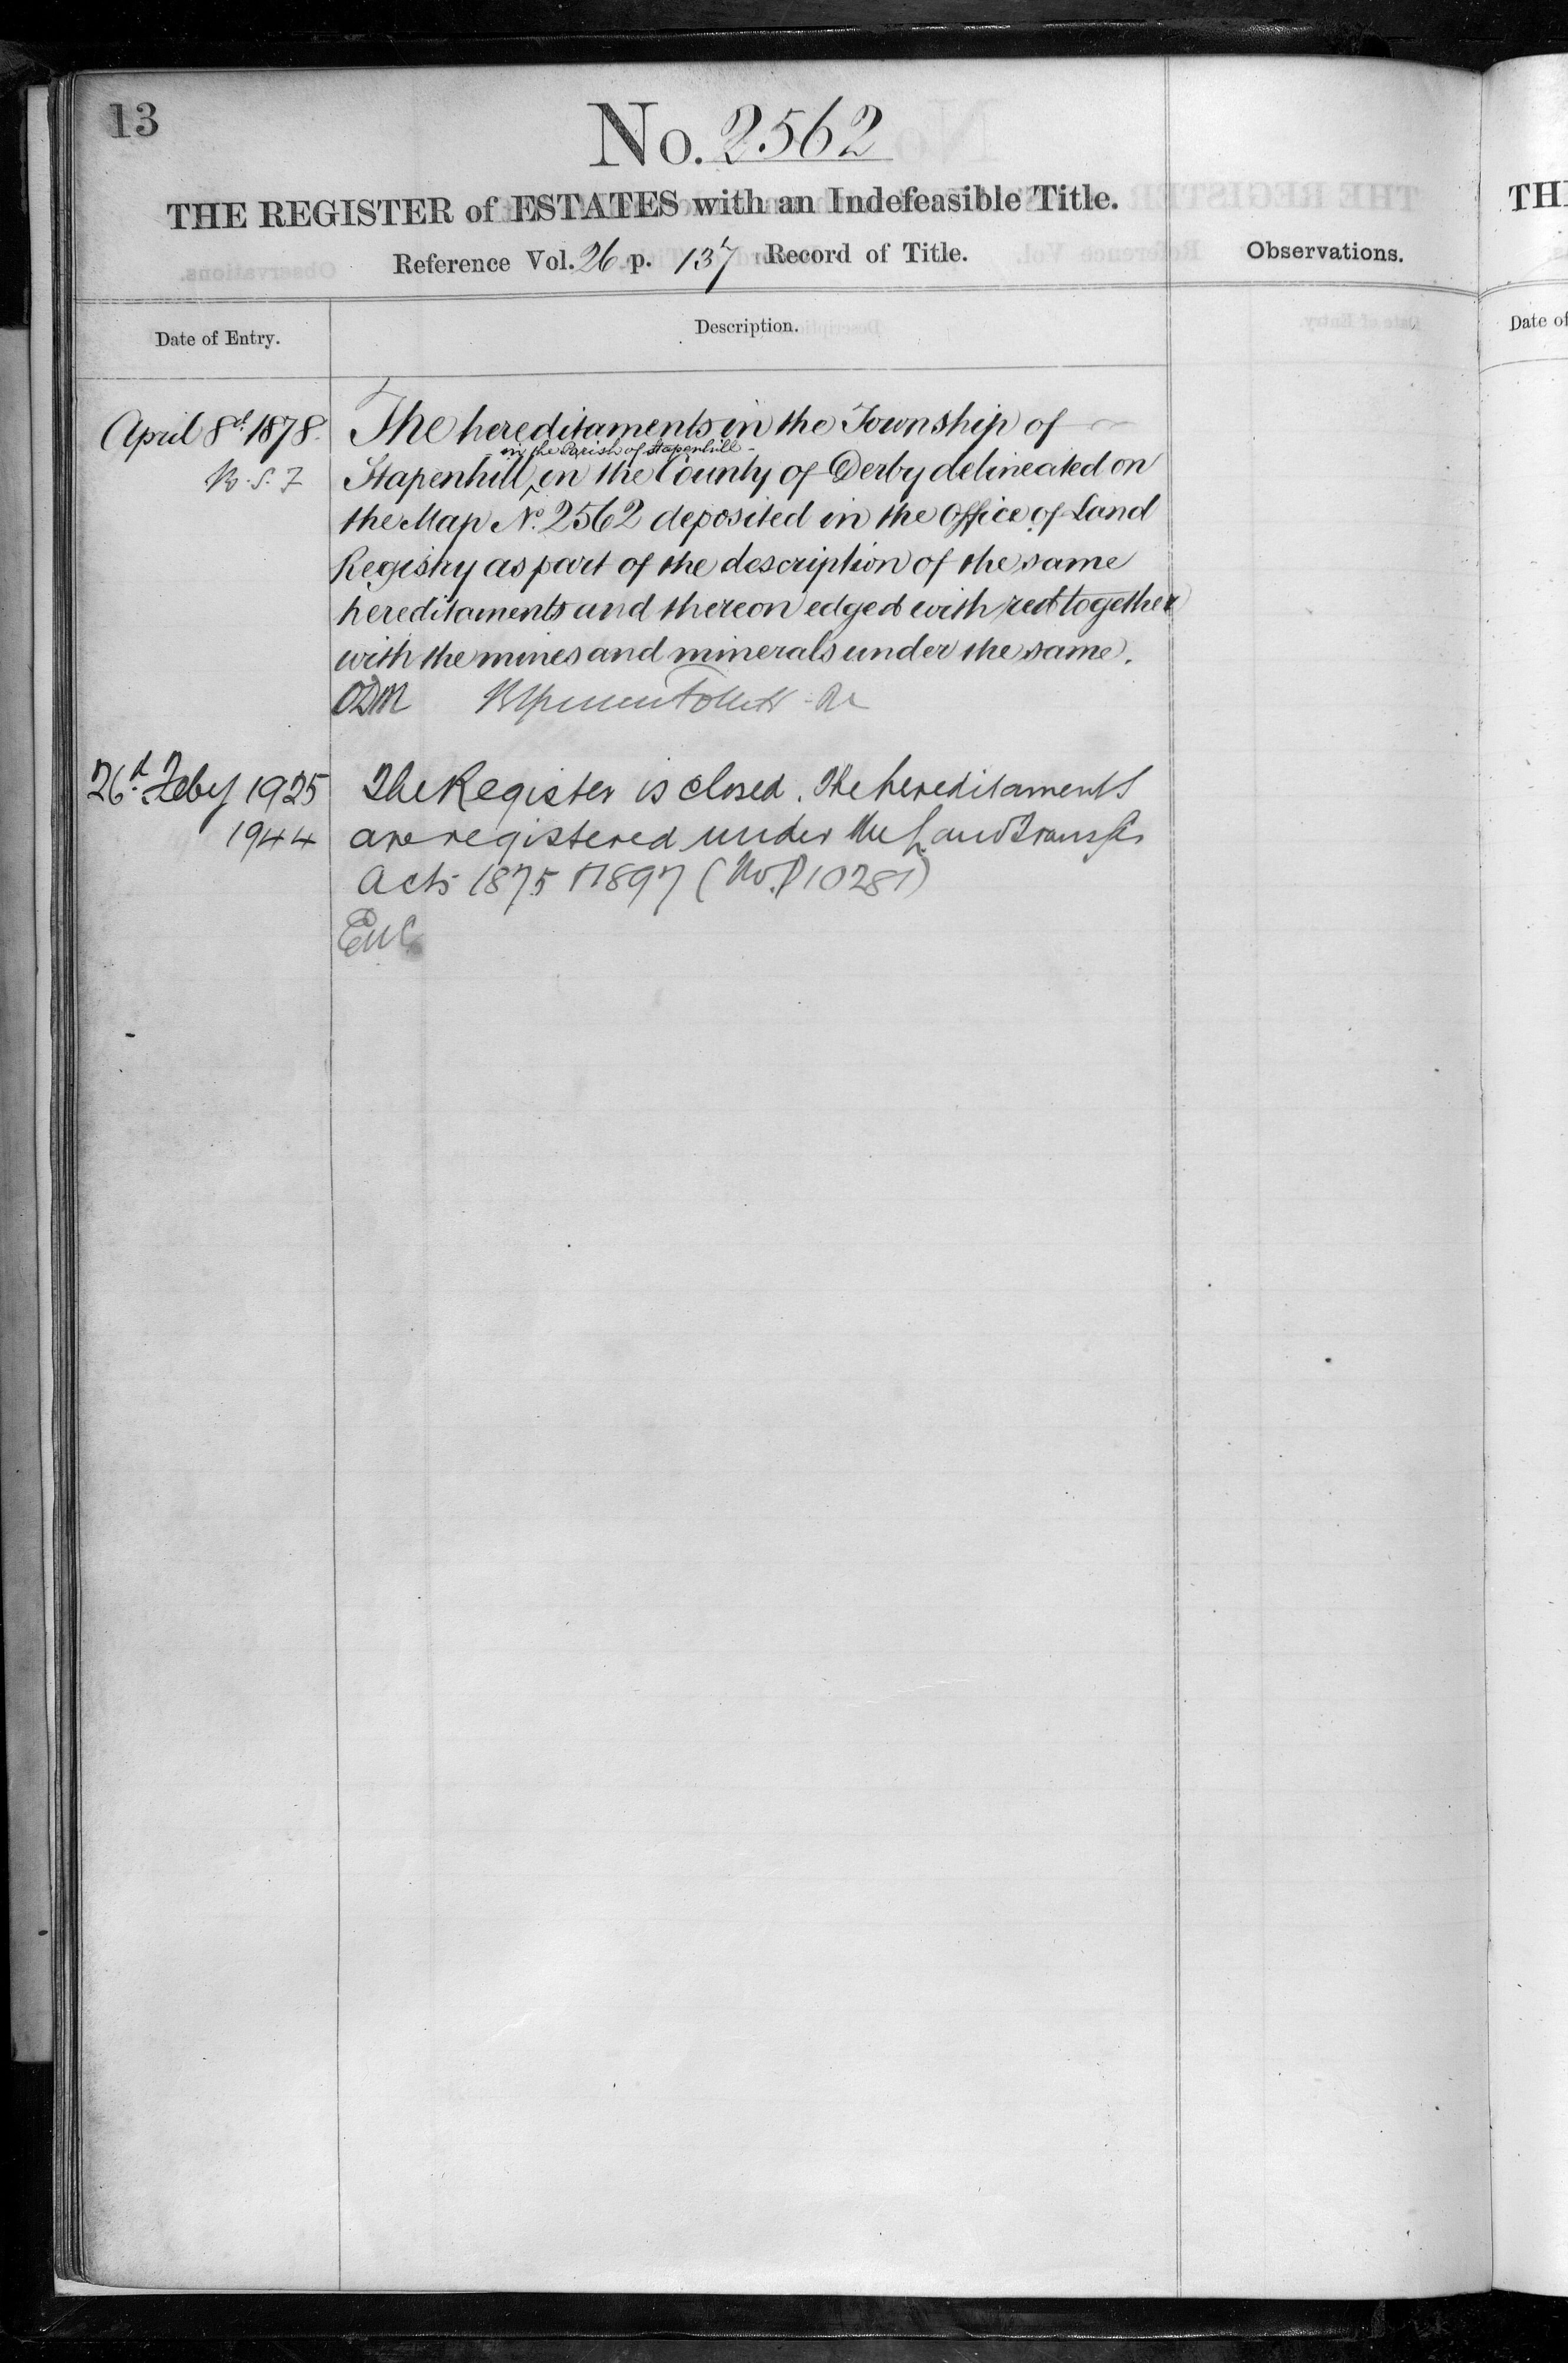 13
No. 2562
THE REGISTER of ESTATES with an Indefeasible Title.
Reference Vol. 26 p. 137 Record of Title.
Observations.
Date of Entry.
Description.
April 8th 1878.
The hereditaments in the Township of
in the Parish of Stapenhill
Stapenhill in the County of Derby delineated on
the Map No. 2562 deposited in the Office of Land
Registry as part of the description of the same
hereditaments and thereon edged with red together
with the mines and minerals under the same.
ODM
26th Feby 1925
The Register is closed. The hereditaments
1944
are registered under the Land Transfer
Acts 1875 & 1897 (No. P10281)
TH
Date of